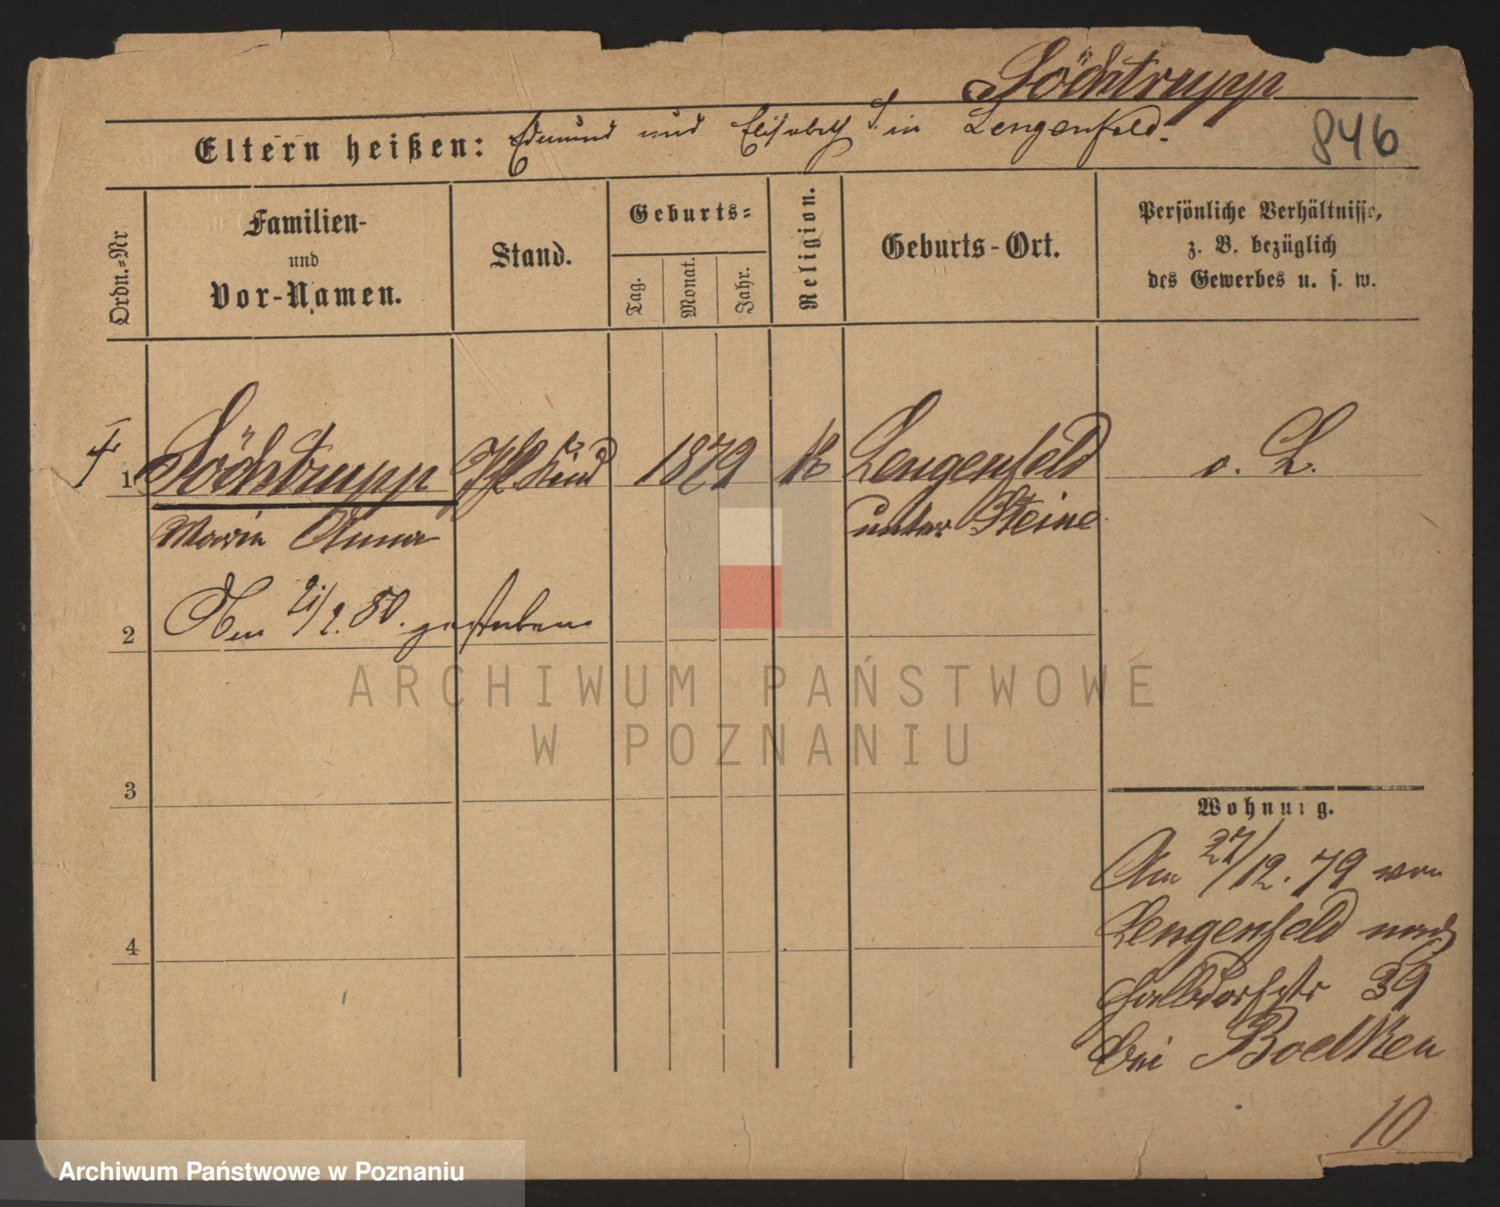 Söchtrupp
Eltern heißen: Edmund und Elisabeth S. in Lengenfeld.
846
Ordn.-Nr
Familien-
und
Vor-Namen.
Stand.
Geburts-
Tag.
Monat.
Jahr.
Religion.
Geburts-Ort.
Persönliche Verhältnisse,
z. B. bezüglich
des Gewerbes u. s. w.
1 Söchtrupp Kind 1879 K Lengenfeld o. L.
Marie Anna unter Steine
2 gestorben
ARCHIWUM PAŃSTWOWE
W POZNANIU
3
Wohnung.
Am 27/12. 79 von
Lengenfeld nach
4
Halbdorfstr 39
bei Boelken
10
Archiwum Państwowe w Poznaniu